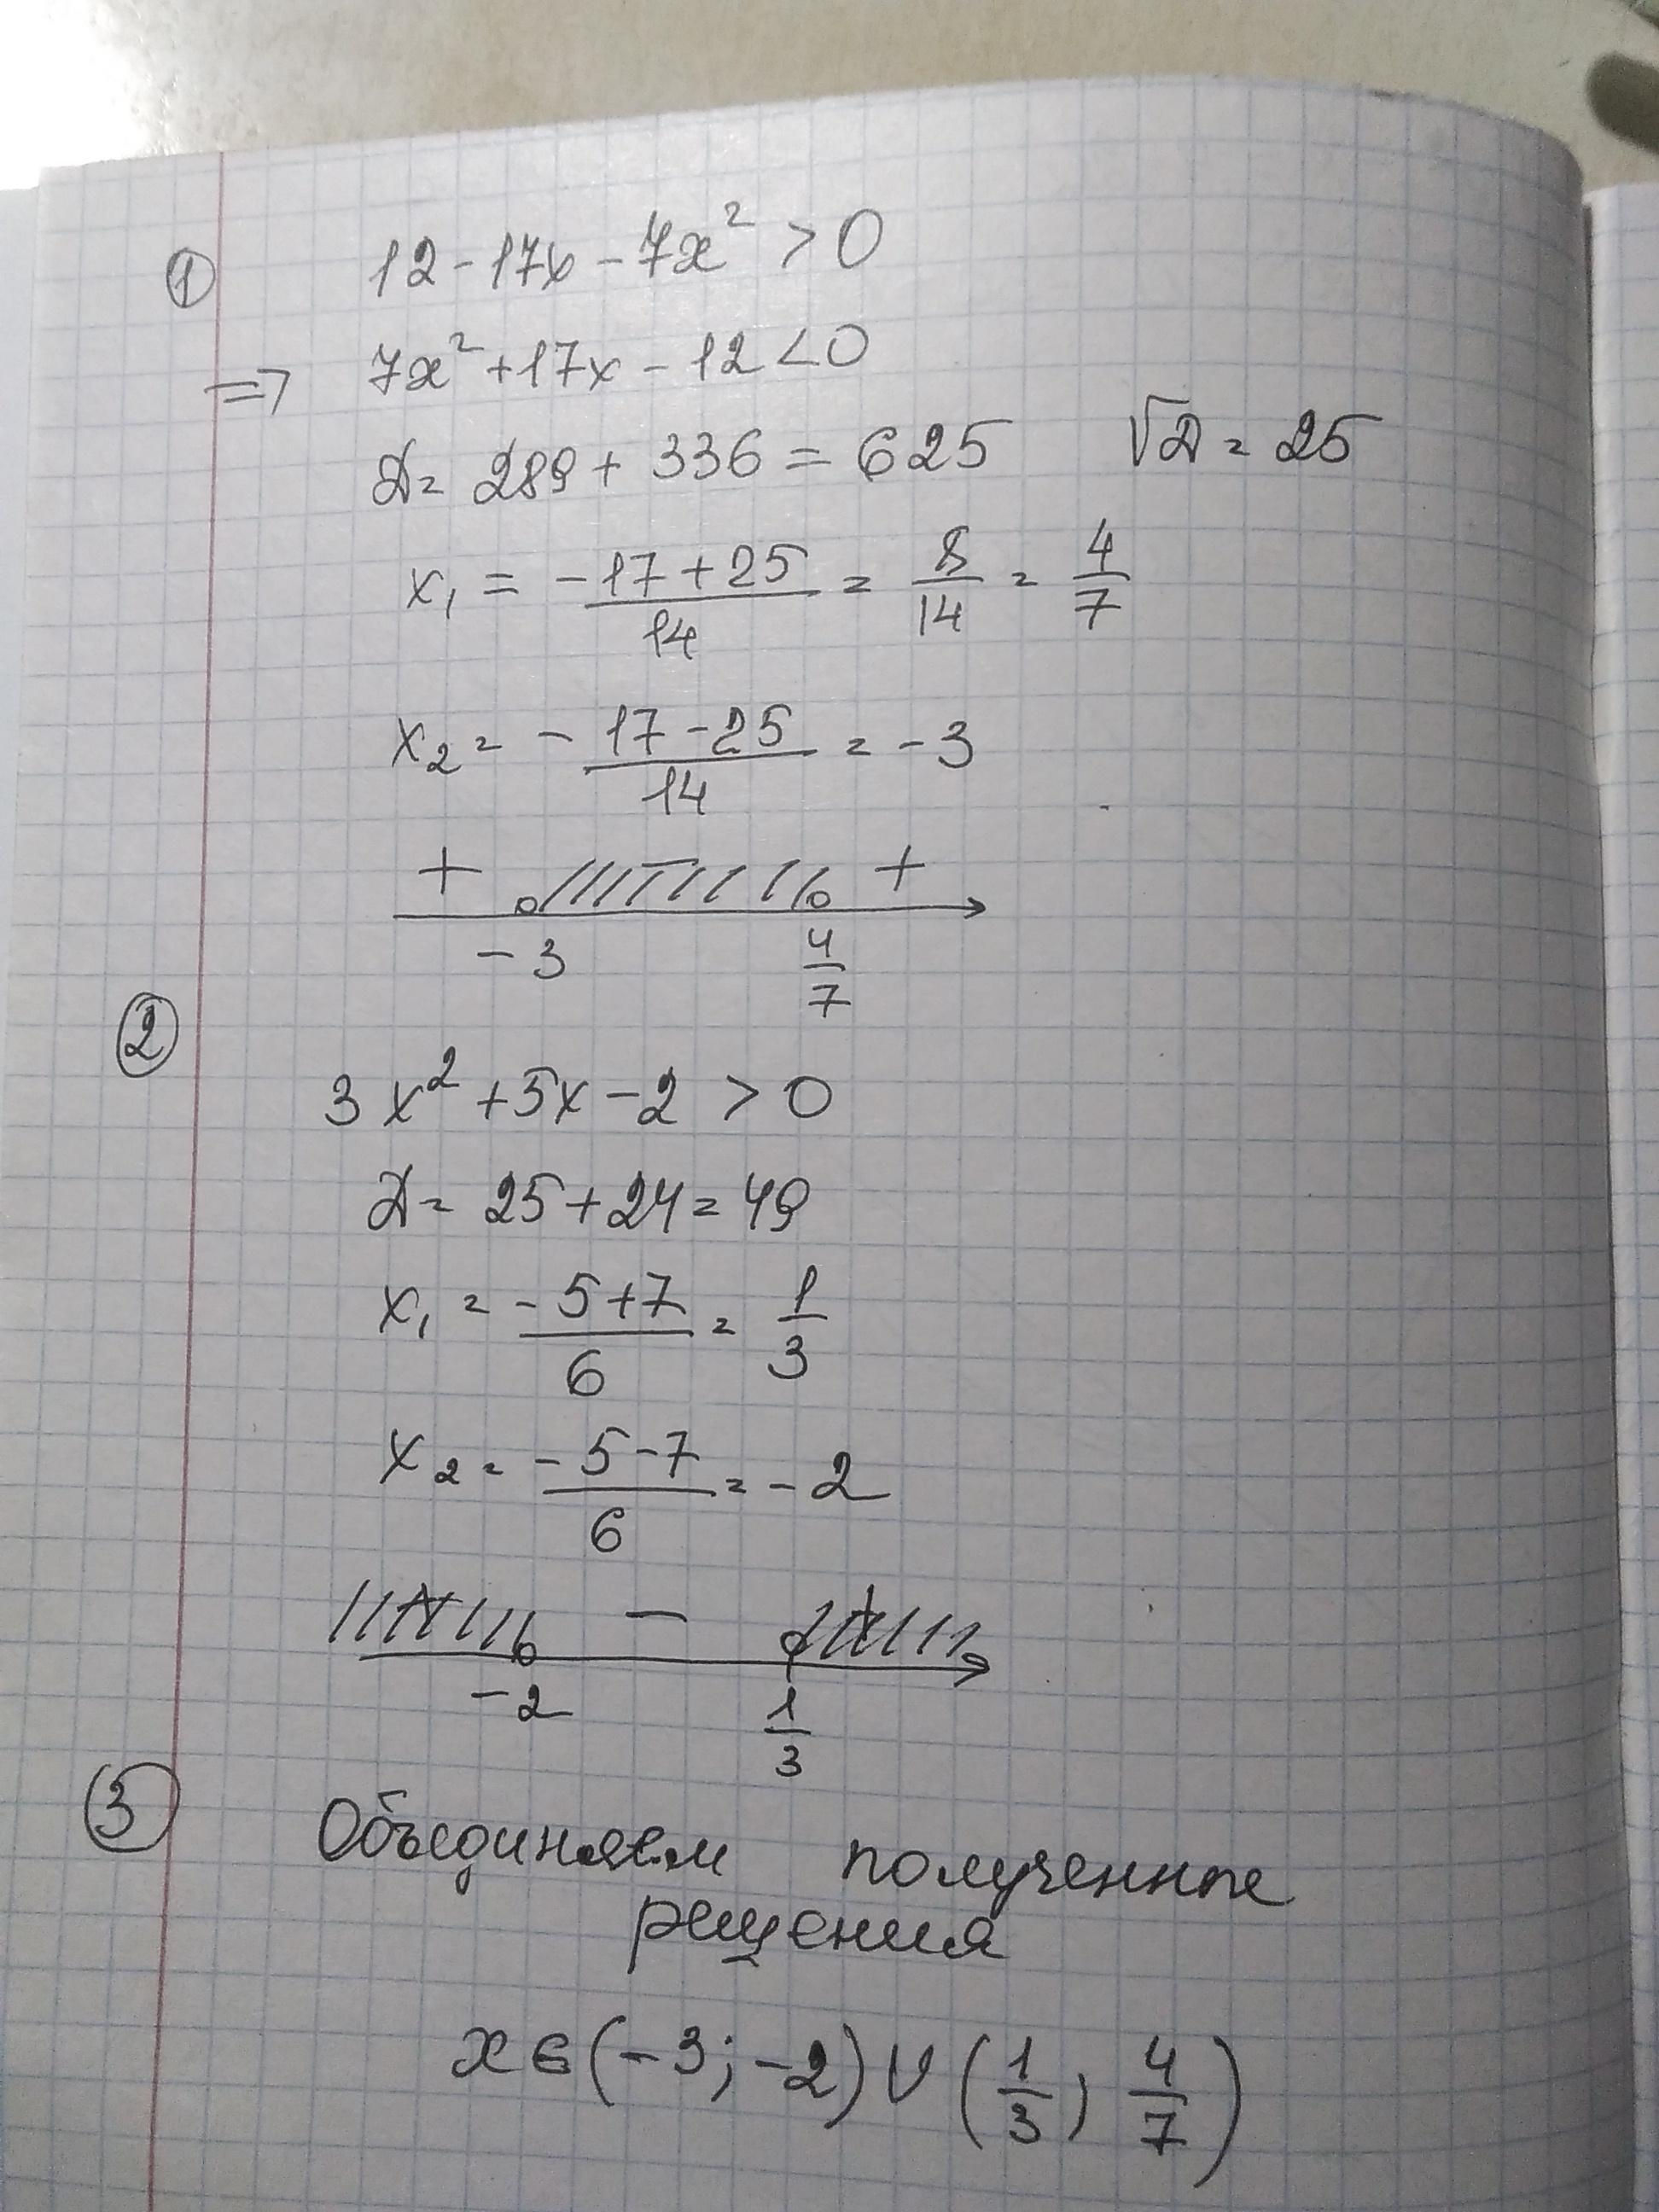 ① 12 - 17x - 7x² > 0
=> 7x² + 17x - 12 < 0
D = 289 + 336 = 625 √D = 25
x₁ = (-17 + 25)/14 = 8/14 = 4/7
x₂ = (-17 - 25)/14 = -3
+ +
-3 4/7
②
3x² + 5x - 2 > 0
D = 25 + 24 = 49
x₁ = (-5 + 7)/6 = 1/3
x₂ = (-5 - 7)/6 = -2
+ - +
-2 1/3
③ Объединяем полученные
решения
x ∈ (-3; -2) ∪ (1/3; 4/7)